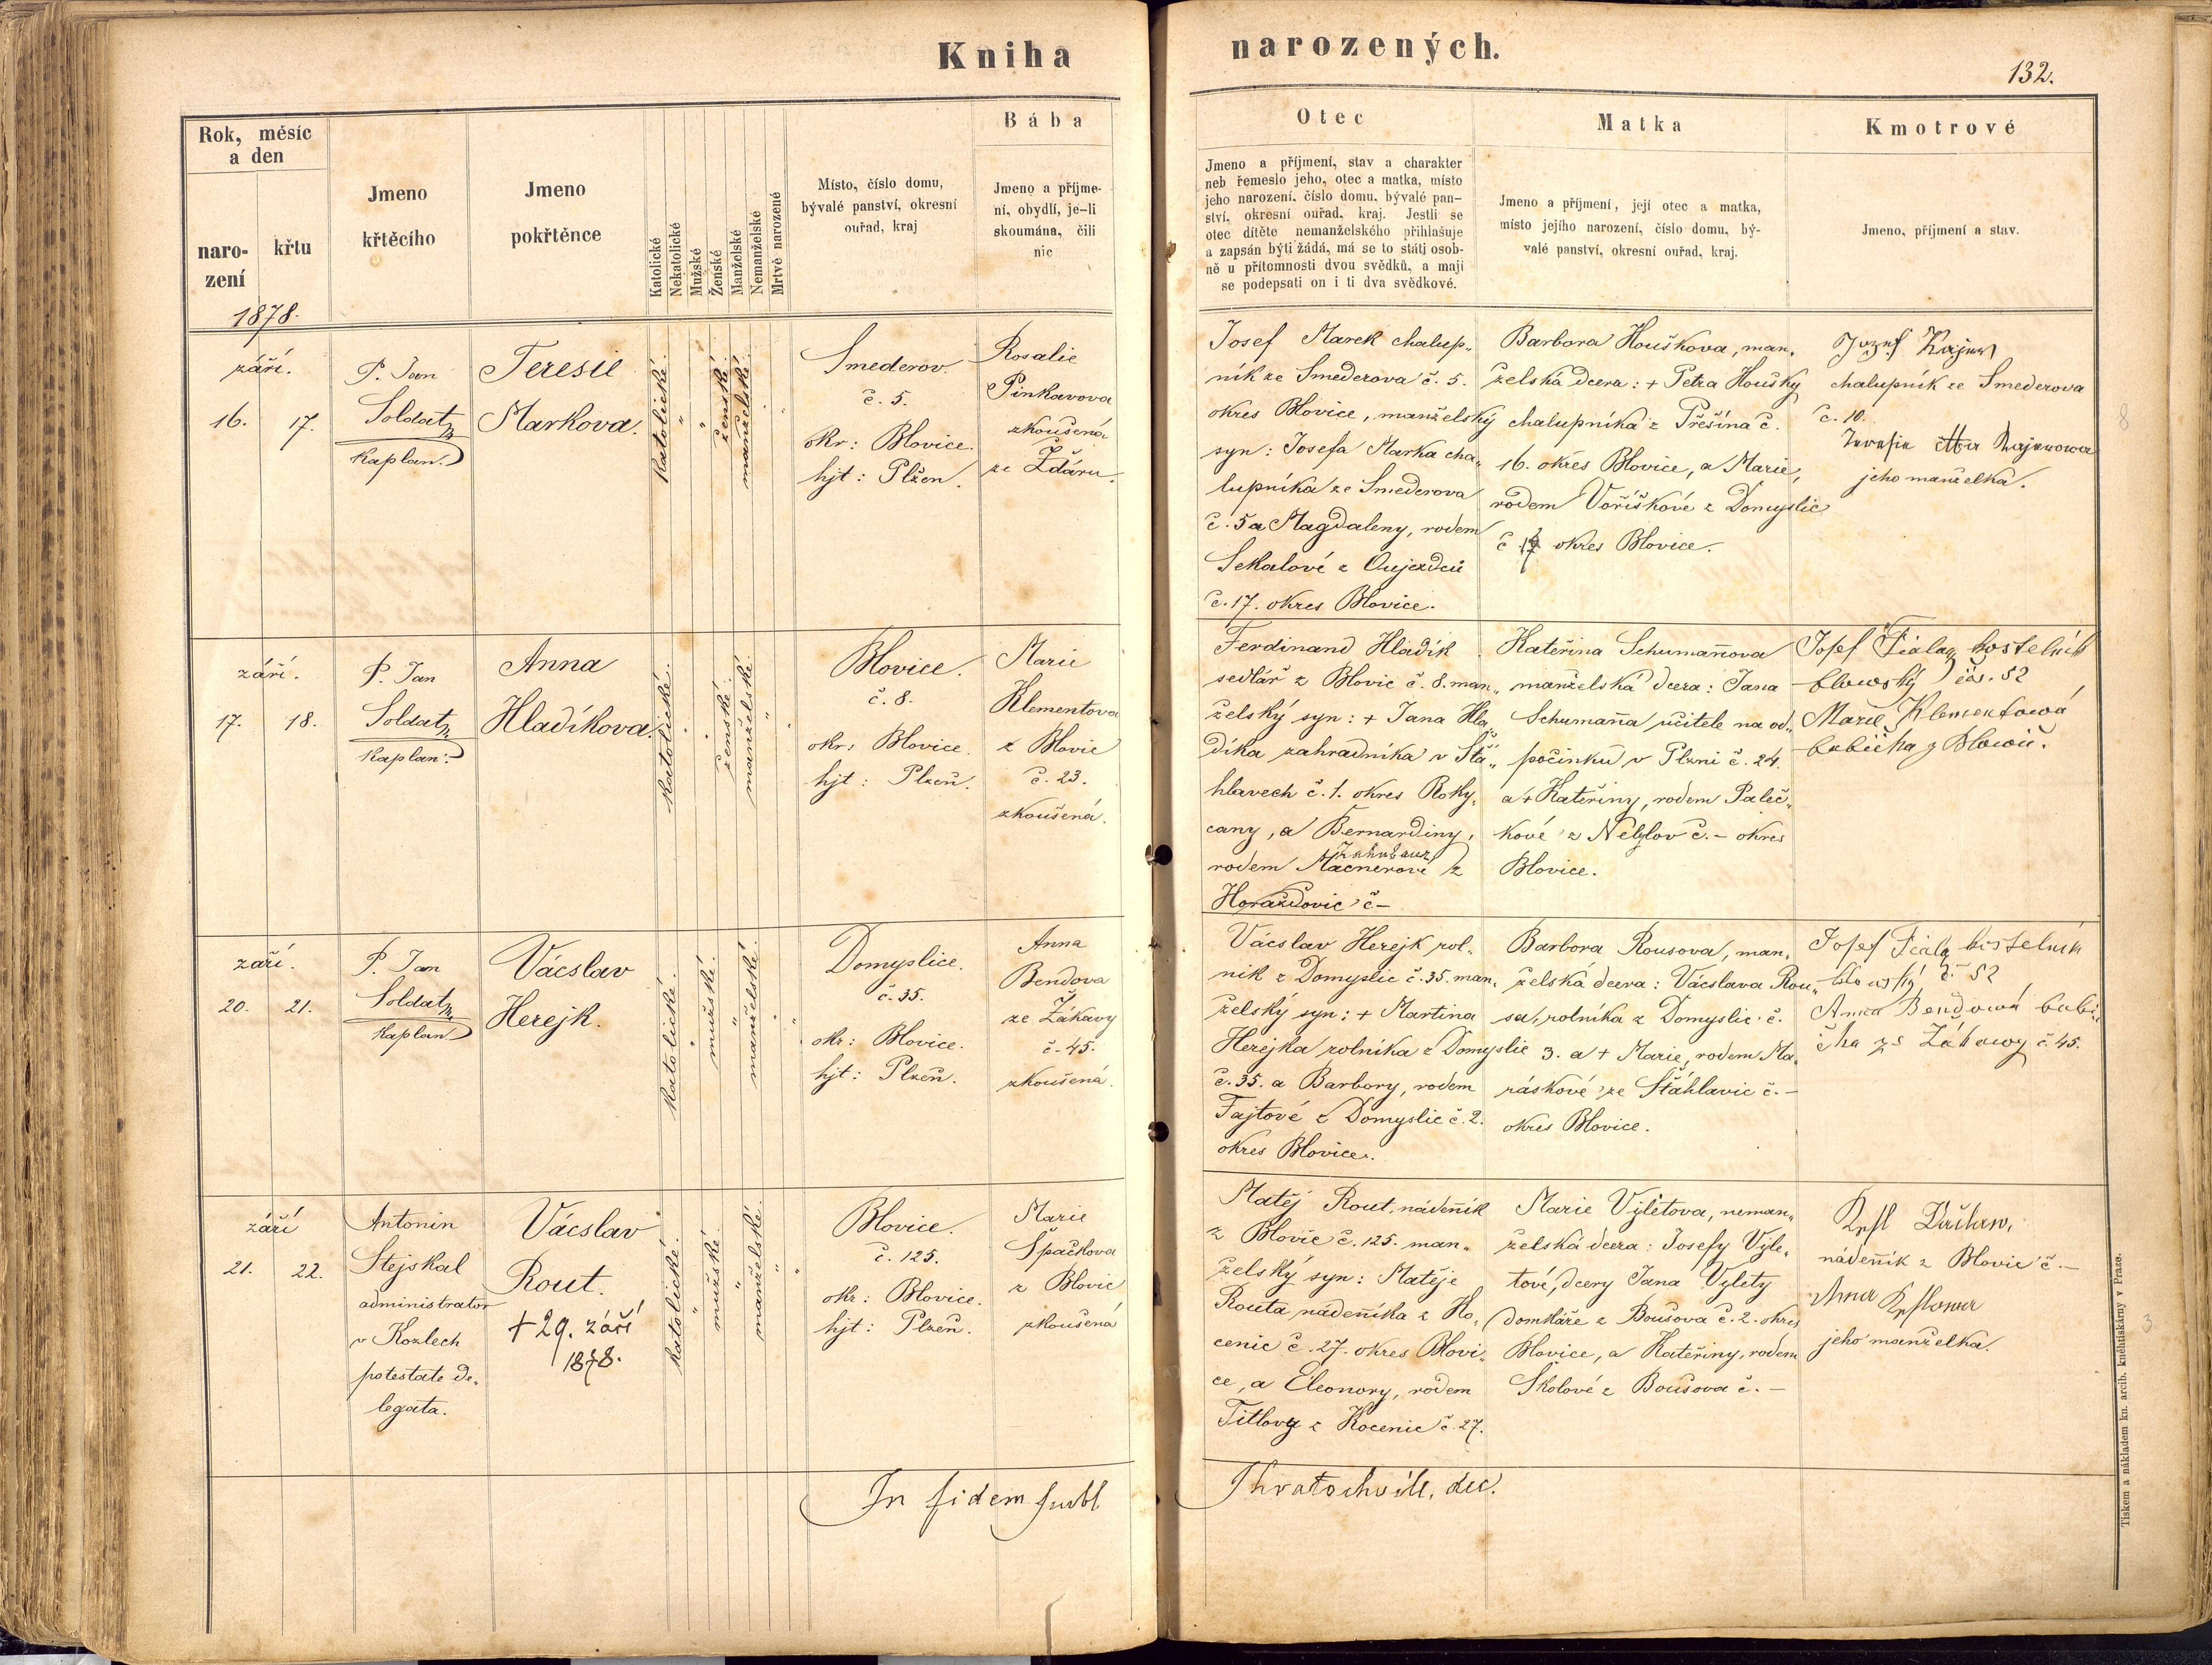 Kniha
narozených.
132.
Rok, měsíc
a den
naro-
zení
křtu
Jmeno
křtěcího
Jmeno
pokřtěnce
Katolické
Nekatolické
Mužské
Ženské
Manželské
Nemanželské
Mrtvě narozené
Místo, číslo domu,
bývalé panství, okresní
ouřad, kraj
Bába
Jmeno a příjme-
ní, obydlí, je-li
skoumána, čili
nic
Otec
Jmeno a příjmení, stav a charakter
neb řemeslo jeho, otec a matka, místo
jeho narození, číslo domu, bývalé pan-
ství, okresní ouřad, kraj. Jestli se
otec dítěte nemanželského přihlašuje
a zapsán býti žádá, má se to státi osob-
ně u přítomnosti dvou svědků, a mají
se podepsati on i ti dva svědkové.
Matka
Jmeno a příjmení, její otec a matka,
místo jejího narození, číslo domu, bý-
valé panství, okresní ouřad, kraj.
Kmotrové
Jmeno, příjmení a stav.
1878.
září.
16. 17.
P. Jan
Soldat
Kaplan.
Teresie
Markova.
Katolické.
ženské.
manželské.
Smederov.
č. 5.
okr: Blovice.
hjt: Plzen.
Rosalie
Pinkavova
zkoušená
ze Ždáru.
Josef Marek chalup„
ník ze Smederova č. 5.
okres Blovice, manželský
syn: Josefa Marka cha„
lupníka ze Smederova
č. 5 a Magdaleny, rodem
Sekalové z Oujezdců
č. 17. okres Blovice.
Barbora Houškova, man„
želská dcera: + Petra Houšky
chalupníka z Přešína č.
16. okres Blovice, a Marie,
rodem Voříškové z Domyslic
č okres Blovice.
Jozef
chalupník ze Smederova
č. 10.
jeho manželka.
září.
17. 18.
P. Jan
Soldat
Kaplan.
Anna
Hladíkova.
Katolické.
ženské.
manželské.
Blovice.
č. 8.
okr: Blovice.
hjt: Plzeň.
Marie
Klementova
z Blovic
č. 23.
zkoušená.
Ferdinand Hladík
sedlář z Blovic č. 8. man„
želský syn: + Jana Hla„
díka zahradníka v Šťá„
hlavech č. 1. okres Roky„
cany, a Bernardiny,
rodem z
Horažďovic č –
Kateřina Schuman̄ova
manželská dcera: Jana
Schuman̄a učitele na od„
počinku v Plzni č. 24.
a + Kateřiny, rodem Paleč„
kové z č. – okres
Blovice.
Josef Fiala kostelník
blowský čís. 52
Marie Klementowá
babička z Blowic.
září.
20. 21.
P. Jan
Soldat
Kaplan
Vácslav
Herejk.
Katolické.
mužské.
manželské.
Domyslice.
č. 35.
okr: Blovice.
hjt: Plzeň.
Anna
Bendova
ze Žákavy
č. 45.
zkoušená.
Vácslav Herejk rol„
ník z Domyslic č. 35. man„
želský syn: + Martina
Herejka rolníka z Domyslic
č. 35. a Barbory, rodem
Fajtové z Domyslic č. 2.
okres Blovice.
Barbora Rousova, man„
želská dcera: Vácslava Rou„
sa, rolníka z Domyslic č.
3. a + Marie, rodem Ma„
ráskové ze Šťáhlavic č. –
okres Blovice.
Josef Fiala kostelník
blowský č. 52
Anna Bendowá babi„
čka ze Žákowy č. 45.
září
21. 22.
Antonin
Stejskal
administrator
v Kozlech
potestate de„
legata.
Vácslav
Rout.
+ 29. září
1878.
Katolické.
mužské.
manželské.
Blovice.
č. 125.
okr: Blovice.
hjt: Plzeň.
Marie
Špačkova
z Blovic
zkoušená
Matěj Rout, náden̄ík
z Blovic č. 125. man„
želský syn: Matěje
Routa náden̄íka z Ho„
cenic č. 27. okres Blovi„
ce, a Eleonory, rodem
Titlovy z Hocenic č. 27.
Marie Výletova, neman„
želská dcera: Josefy Výle„
tové, dcery Jana Výlety
domkáře z Bousova č. 2. okres
Blovice, a Kateřiny, rodem
Školové z Bousova č. –
náden̄ík z Blovic č. –
Anna
jeho manželka.
In fidem
Jhratochvile, dec.
Tiskem a nákladem kn. arcib. kněhtiskárny v Praze.
8
3